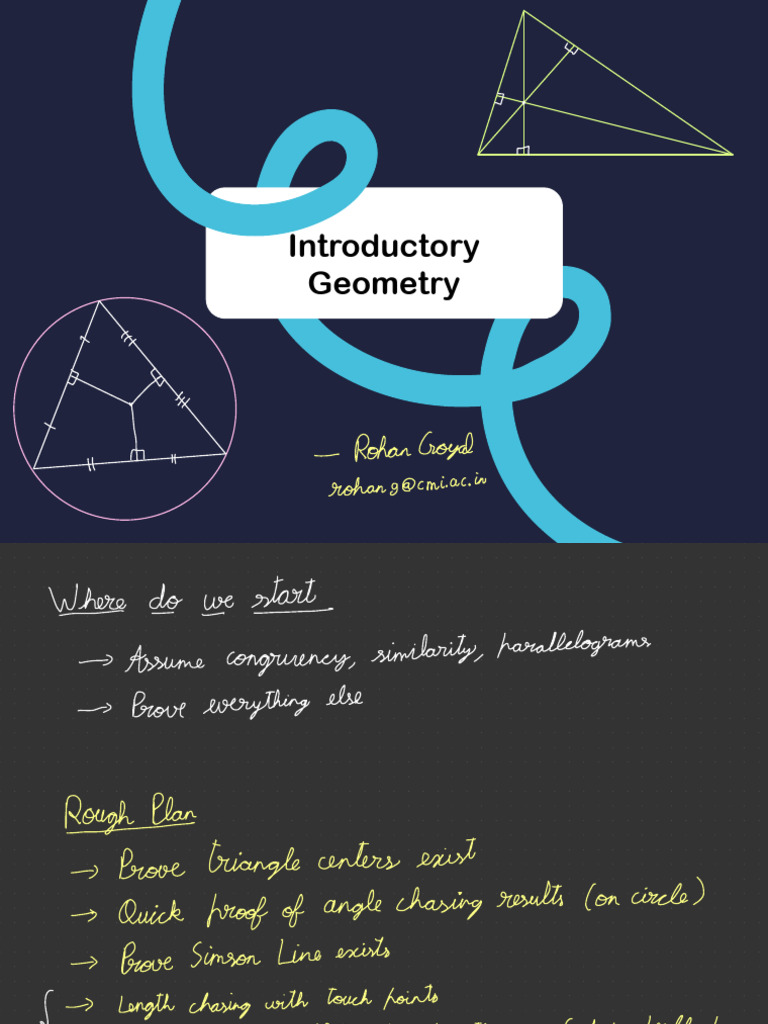 Introductory
Geometry
— Rohan Goyal
rohang@cmi.ac.in
Where do we start
→ Assume congruency, similarity, parallelograms
→ Prove everything else
Rough Plan
→ Prove triangle centers exist
→ Quick proof of angle chasing results (on circle)
→ Prove Simson Line exists
→ Length chasing with touch points